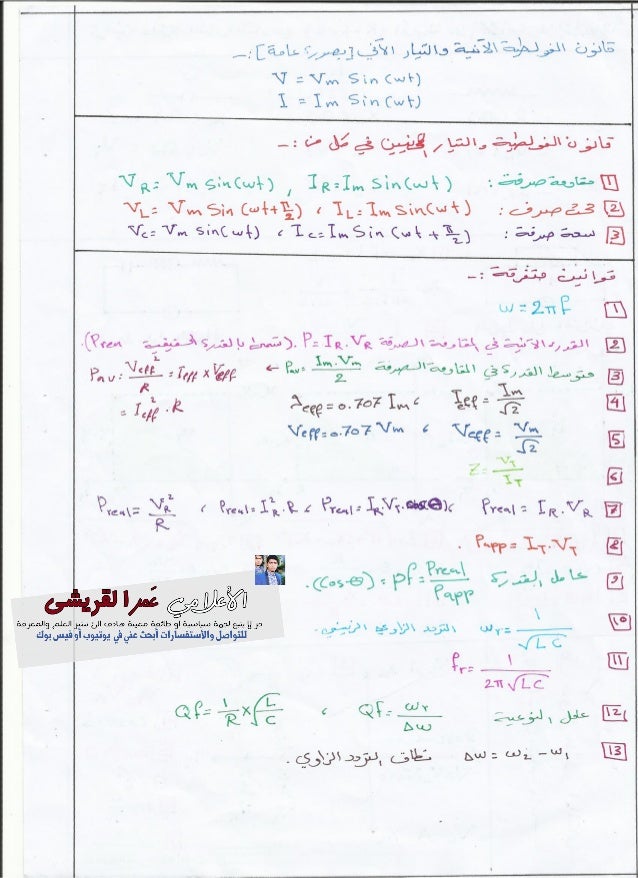 قانون الفولطية الآنية والتيار الآني [بصورة عامة]:-
V = Vm Sin (wt)
I = Im Sin (wt)
قانون الفولطية والتيار في كل من :-
[1] مقاومة صرفة : VR = Vm Sin(wt) , IR = Im Sin(wt)
[2] محث صرف : VL = Vm Sin (wt + π/2) ، IL = Im Sin(wt)
[3] سعة صرفة : Vc = Vm sin(wt) ، Ic = Im Sin (wt + π/2)
قوانين متفرقة :-
[1] ω = 2πf
[2] القدرة الآنية في المقاومة الصرفة P = IR . VR (تسمى بالقدرة الحقيقية Preal).
[3] متوسط القدرة في المقاومة الصرفة Pav = Im.Vm/2 ← Pav = Veff²/R = Ieff × Veff
= Ieff² . R
[4] Ieff = Im/√2 ، Ieff = 0.707 Im
[5] Veff = Vm/√2 ، Veff = 0.707 Vm
[6] Z = VT/IT
[7] Preal = IR . VR ، Preal = IR VT . cos Θ ، Preal = IR² . R ، Preal = VR²/R
[8] Papp = IT . VT .
[9] عامل القدرة (Cos Θ) = pf = Preal/Papp .
[10] ωr = 1/√LC التردد الزاوي الرنيني .
[11] fr = 1/2π√LC
[12] عامل النوعية Qf = ωr/Δω ، Qf = 1/R × √L/C
[13] Δω = ω2 - ω1 نطاق التردد الزاوي .
الأعلامي عمر القريشي
للتواصل والأستفسارات أبحث عني في يوتيوب أو فيس بوك